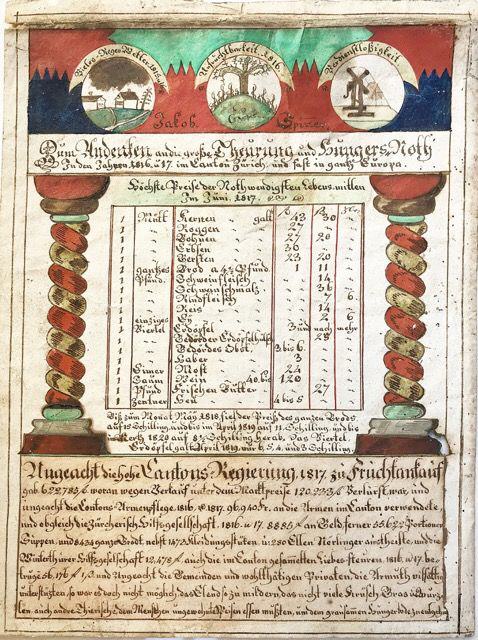 Vieles Regen-Wetter. 1816.
Unfruchtbarkeit. 1816.
Verdienstlosigkeit
Jakob. Spizer.
Zum Andenken an die große Theurung und Hungers-Noth
In den Jahren. 1816. u. 17. im Canton Zürich. und fast in gantz Europa.
Höchste Preise der Nothwendigsten Lebens-mitlen
Im Juni. 1817.
1 Mütt Kernen galt 43 30
1 " Roggen " 27 "
1 " Bohnen " 27 20
1 " Erbsen " 36 "
1 " Gersten " 23 20
1 gantzes Brod a 4½ Pfund. 1 11 "
1 Pfund. Schweinfleisch " 14 "
1 " Schweinschmalz " 36 "
1 " Rindfleisch " 7 6
1 " Reis " 14 "
1 einziges Ey " 2 6
1 Viertel Erdöpfel 3 und nach mehr
1 " Gedörder Erdöpfel 28
1 " Gedördes Obst, 3 bis 6.
1 " Haber 3
1 Eimer Most 24
1 Saum Wein 40. bis 120
1 Pfund Frischen Butter " 27
1 Zentner Heu 4 bis 5
Biß zum Monat May 1818, fiel der Preiß des ganzen Brods
auf 15 Schilling, und bis im April 1819 auf 11. Schilling, und bis
im Herbst 1820 auf 8½ Schilling herab. Das Viertel
Erdöpfel galt April 1819 nur 6, 5, 4, und 3 Schilling.
Ungeacht die hohe Cantons Regierung, 1817. zu Fruchtankauf
gab. 622785 f. woran wegen Verkauf unter dem Marktpreise 120,223 f. Verlurst war, und
ungeacht die Cantons Armenpflege. 1816. u. 1817. 96,940 Fr. an die Armen im Canton verwendete
und obgleich die Zürcherisch. Hilfsgesellschaft. 1816. u. 17. 8885 f. an Geld, ferner 55622 Portionen
Suppen, und 8434 ganze Brodt, nebst 1472 Kleidungsstüken, u. 280 Ellen Nörlinger austheilte, und die
Winterthurer Hilfsgesellschaft 12,478 f. auch die im Canton gesamelten Liebes-steüren. 1816. u. 17. be-
trüge 56,176 f. und Ungeacht die Gemeinden und wohlthätigen Privaten, die Armuth vilfältig
unterstützten, so war es doch nicht möglich das Elend so zu mildern, das nicht viele Krüsch, Gras u. Wurz-
len, auch andre Thierische, dem Menschen ungewohnte Speisen essen müßten, um dem grausamen Hungertode zu entgehen